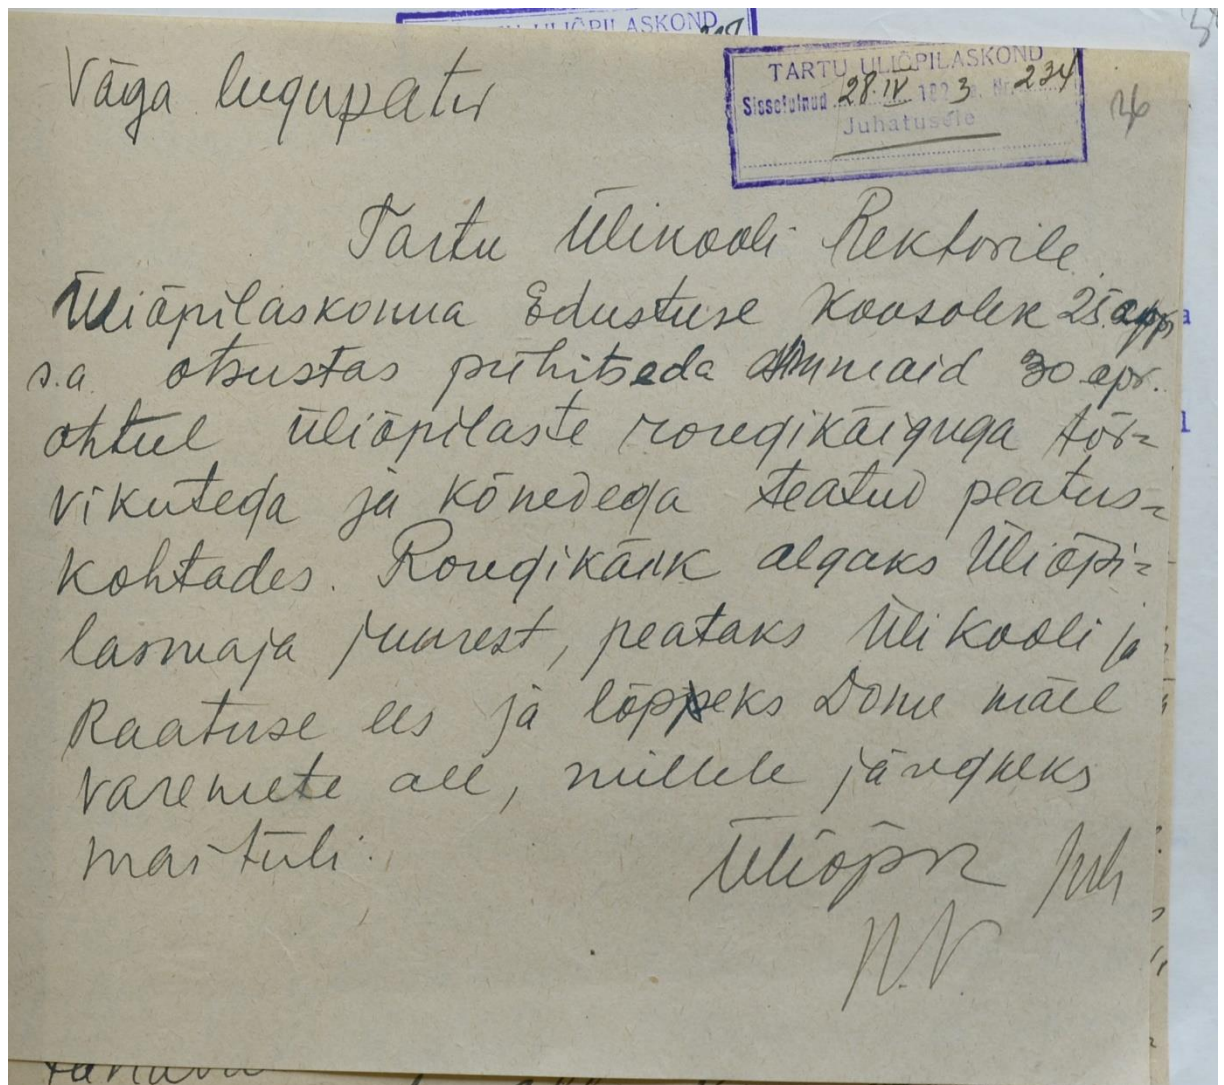 ÜLIÕPILASKOND
TARTU ÜLIÕPILASKOND
Sissetulnud 28.IV 192 3 a. Nr. 234
Juhatusele
26
Väga lugupetu
Tartu Ülikooli Rektorile
Üliõpilaskonna Edustuse Koosolek 25. apr
s.a. otsustas pühitseda maid 30 apr.
õhtul üliõpilaste rongikäiguga tõr=
vikutega ja kõnedega teatud peatus=
kohtades. Rongikäik algaks Üliõpi=
lasmaja juurest, peataks Ülikooli ja
Raatuse ees ja lõppeks Dome mäel
varemete all, millele järgneks
maituli.
Üliõpk Juh
N.N.